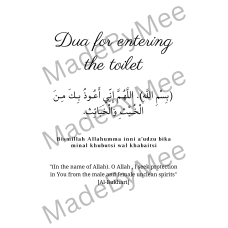 Dua for entering
the toilet
(بِسْمِ اللهِ). اللَّهُمَّ إِنِّي أَعُوذُ بِكَ مِنَ
الْخُبْثِ وَالْخَبَائِثِ
Bismillah Allahumma inni a'udzu bika
minal khubutsi wal khabaitsi
"(In the name of Allah). O Allah , I seek protection
in You from the male and female unclean spirits"
[Al-Bukhari]
MadeByMee
MadeByMee
MadeByMee
MadeByMee